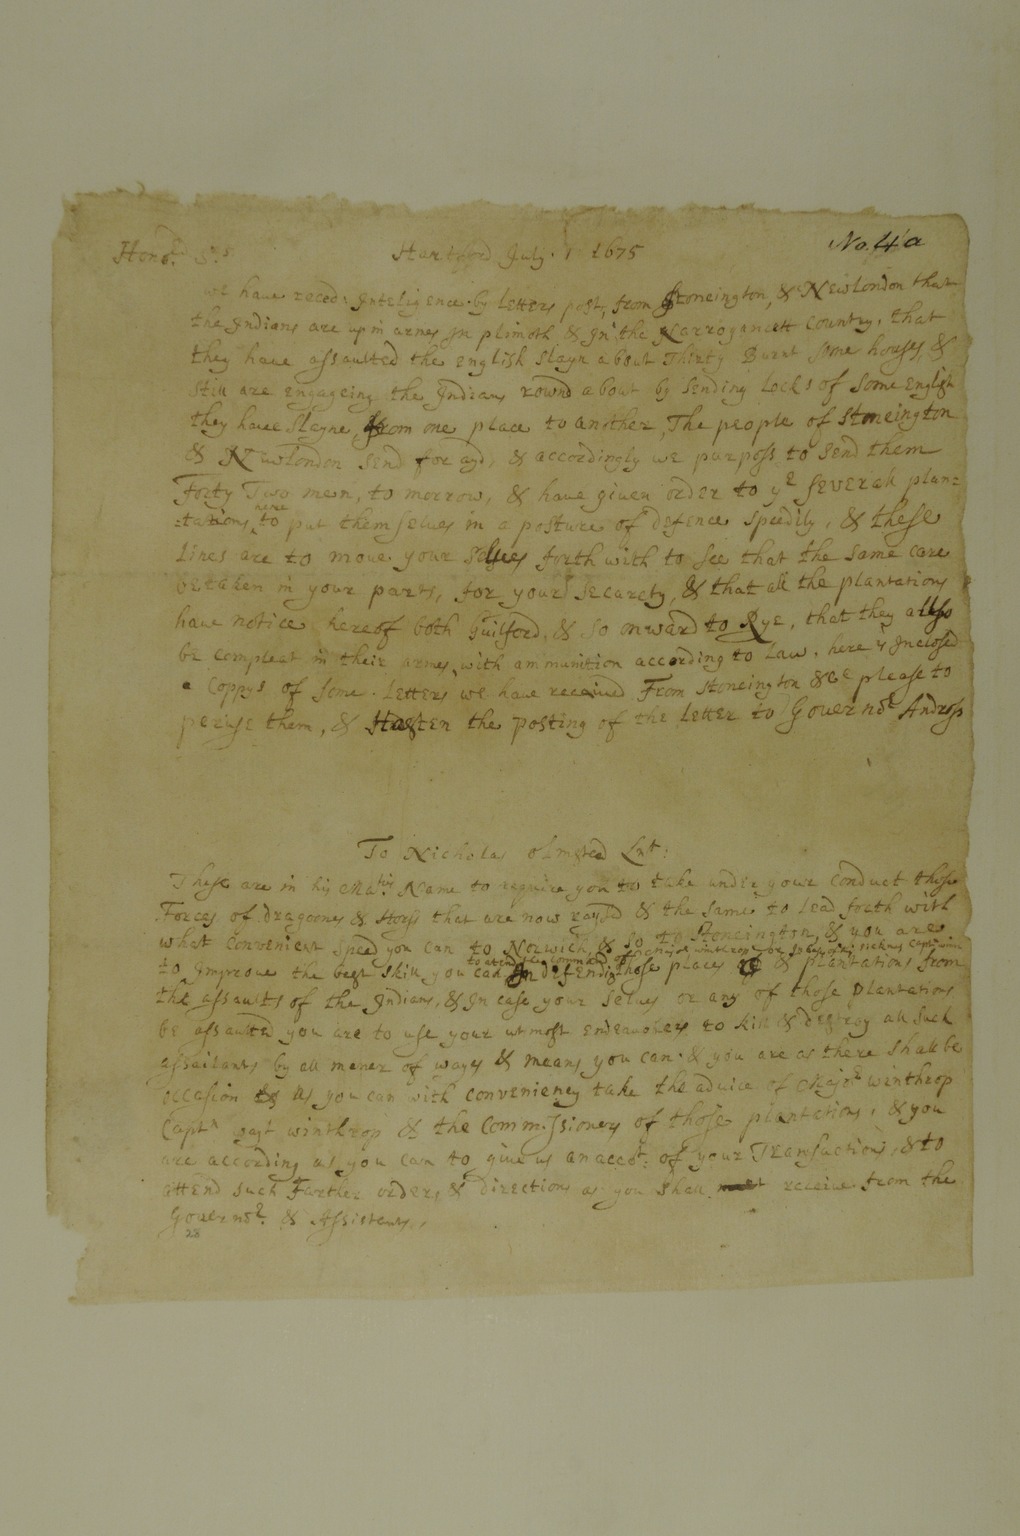 No. 4a
Honrd Srs Hartford July. 1 1675
we have reced: Inteligence by Letters post, from Stoneington, & Newlondon that
the Indians are up in armes In plimoth & In the Narrogancett Country, that
they have assaulted the english slayn about Thirty Burnt some houses, &
still are engageing the Indians round about by sending Locks of some English
they have slayne, from one place to another, The people of stoneington
& Newlondon send for ayd, & accordingly we purposs to send them
Forty Two men, to morrow, & have given order to ye severall plan=
=tations here to put themselves in a posture of defence speedily, & these
Lines are to move your selves forthwith to see that the same care
be taken in your parts, for your securety, & that all the plantations
have notice hereof both Guilford, & so onward to Rye, that they allso
be compleat in their armes, with ammunition according to Law. here is Inclosed
Coppys of some Letters we have received From stoneington &ce please to
peruse them, & Hasten the posting of the Letter to Governor Andross
To Nicholas olmsted Lnt:
These are in his Matis Name to require you to take under your Conduct those
Forces of dragoones & Horss that are now raysed & the same to Lead forth with
what convenient speed you can to Norwich, & so to Stoneington, & you are
to attend the command of
to improve the best skill you can In defending those places & plantations from
the assaults of the Indians, & In case your selves or any of those plantations
be assaulted you are to use your utmost Endeavoures to kill & destroy all such
assailants by all maner of wayes & means you can. & you are as there shall be
occasion & as you can with conveniency take the advice of Major winthrop
Captn wayt winthrop & the Commissioners of those plantations, & you
are according as you can to give us an accot: of your Transactions, & to
attend such Further orders, & directions as you shall receive from the
Governor. & Assistants,
28